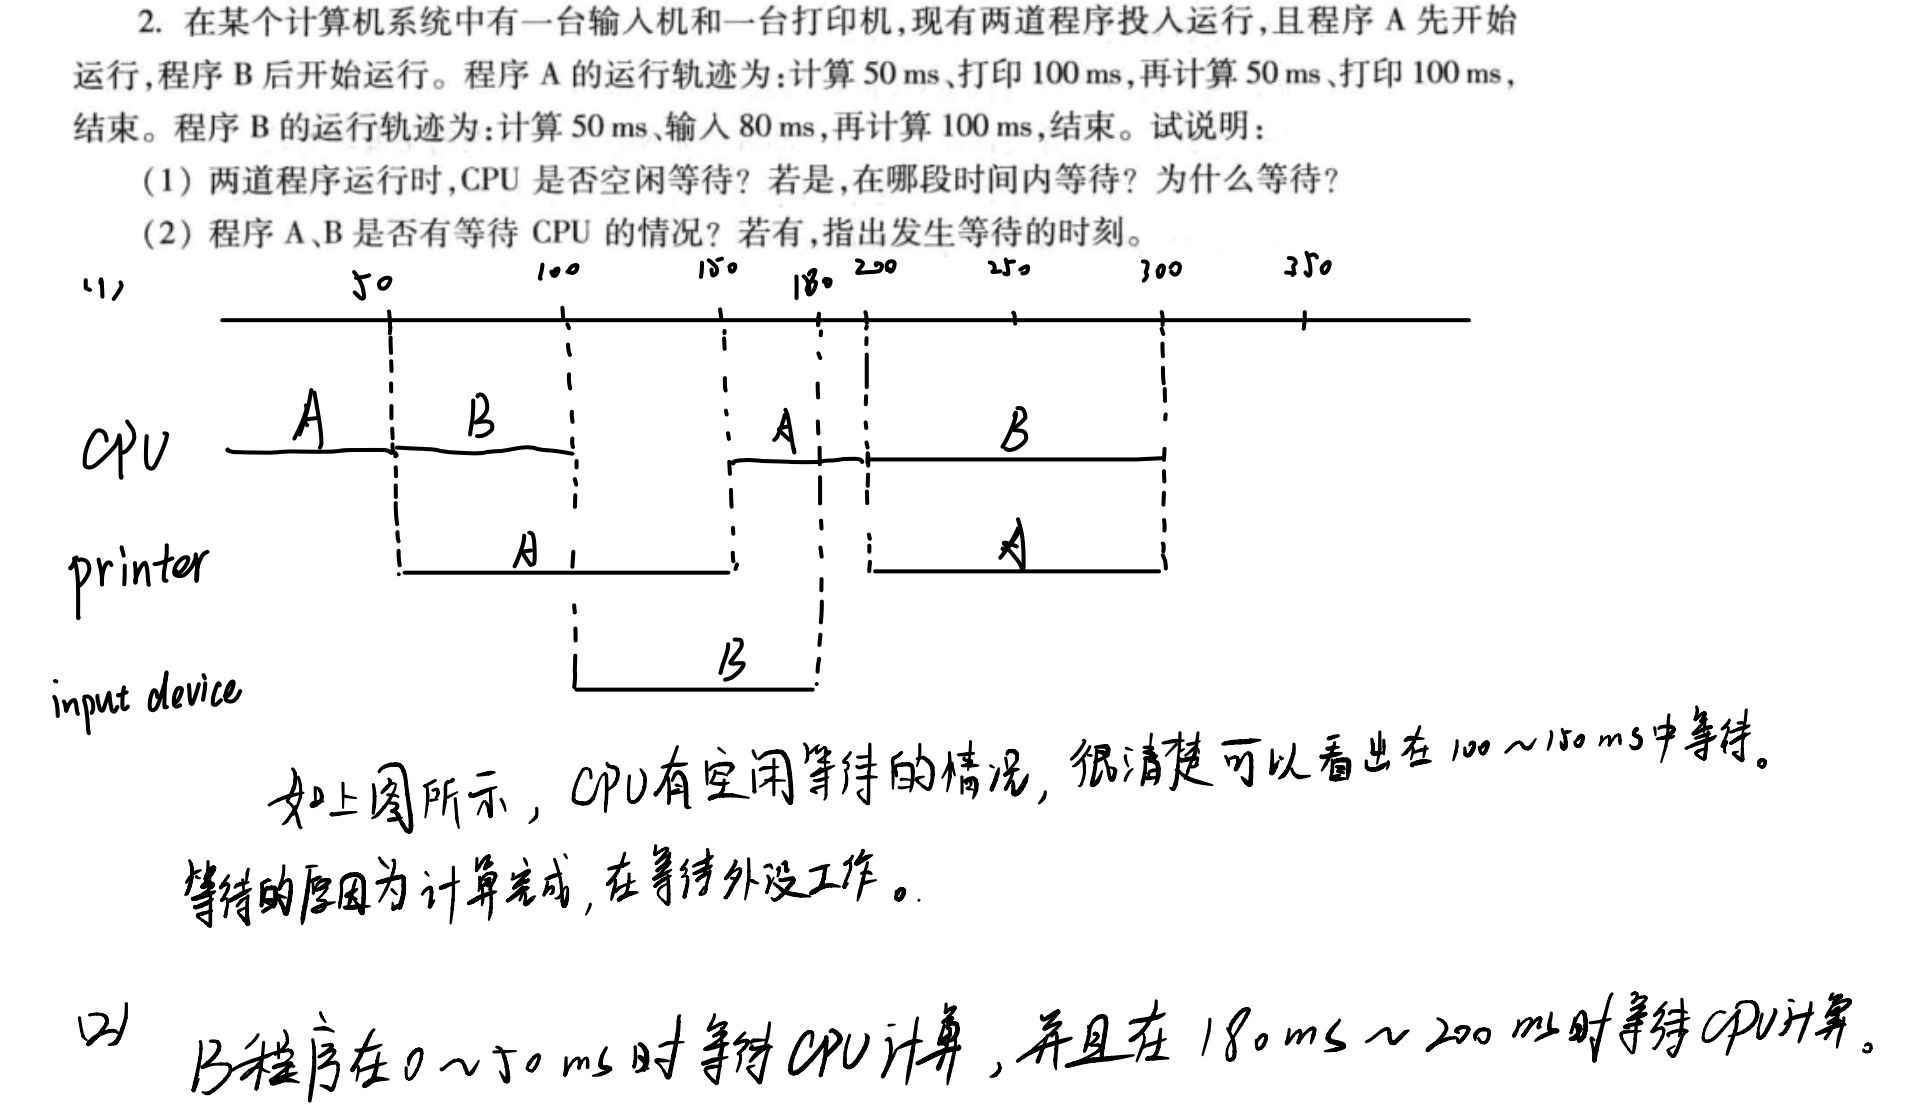 2. 在某个计算机系统中有一台输入机和一台打印机,现有两道程序投入运行,且程序 A 先开始
运行,程序 B 后开始运行。程序 A 的运行轨迹为:计算 50 ms、打印 100 ms,再计算 50 ms、打印 100 ms,
结束。程序 B 的运行轨迹为:计算 50 ms、输入 80 ms,再计算 100 ms,结束。试说明:
(1) 两道程序运行时,CPU 是否空闲等待? 若是,在哪段时间内等待? 为什么等待?
(2) 程序 A、B 是否有等待 CPU 的情况? 若有,指出发生等待的时刻。
(1) 50 100 150 180 200 250 300 350
CPU A B A B
printer A A
input device B
如上图所示, CPU有空闲等待的情况, 很清楚可以看出在 100~150 ms中等待。
等待的原因为计算完成, 在等待外设工作。
(2) B程序在0~50 ms时等待CPU计算, 并且在 180 ms ~ 200 ms时等待CPU计算。